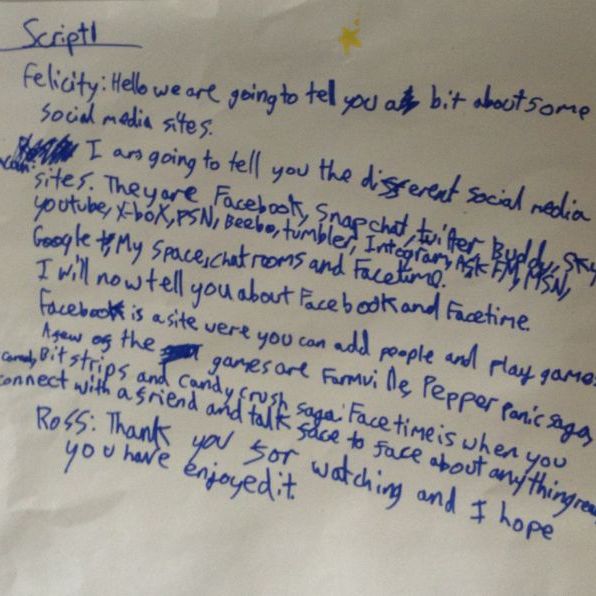 Script 1
Felicity: Hello we are going to tell you a bit about some
social media sites.
I am going to tell you the different social media
sites. They are Facebook, Snapchat, twitter Buddy, Sky
youtube, X-box, PSN, Beebo, tumbler, Integram, Ask FM, MSN,
Google +, My Space, chat rooms and Facetime.
I will now tell you about Facebook and Facetime.
Facebook is a site were you can add people and play games
A few of the games are Farmville, Pepper panic saga,
Bitstrips and candy crush saga. Facetime is when you
connect with a friend and talk face to face about anything
Ross: Thank you for watching and I hope
you have enjoyed it.